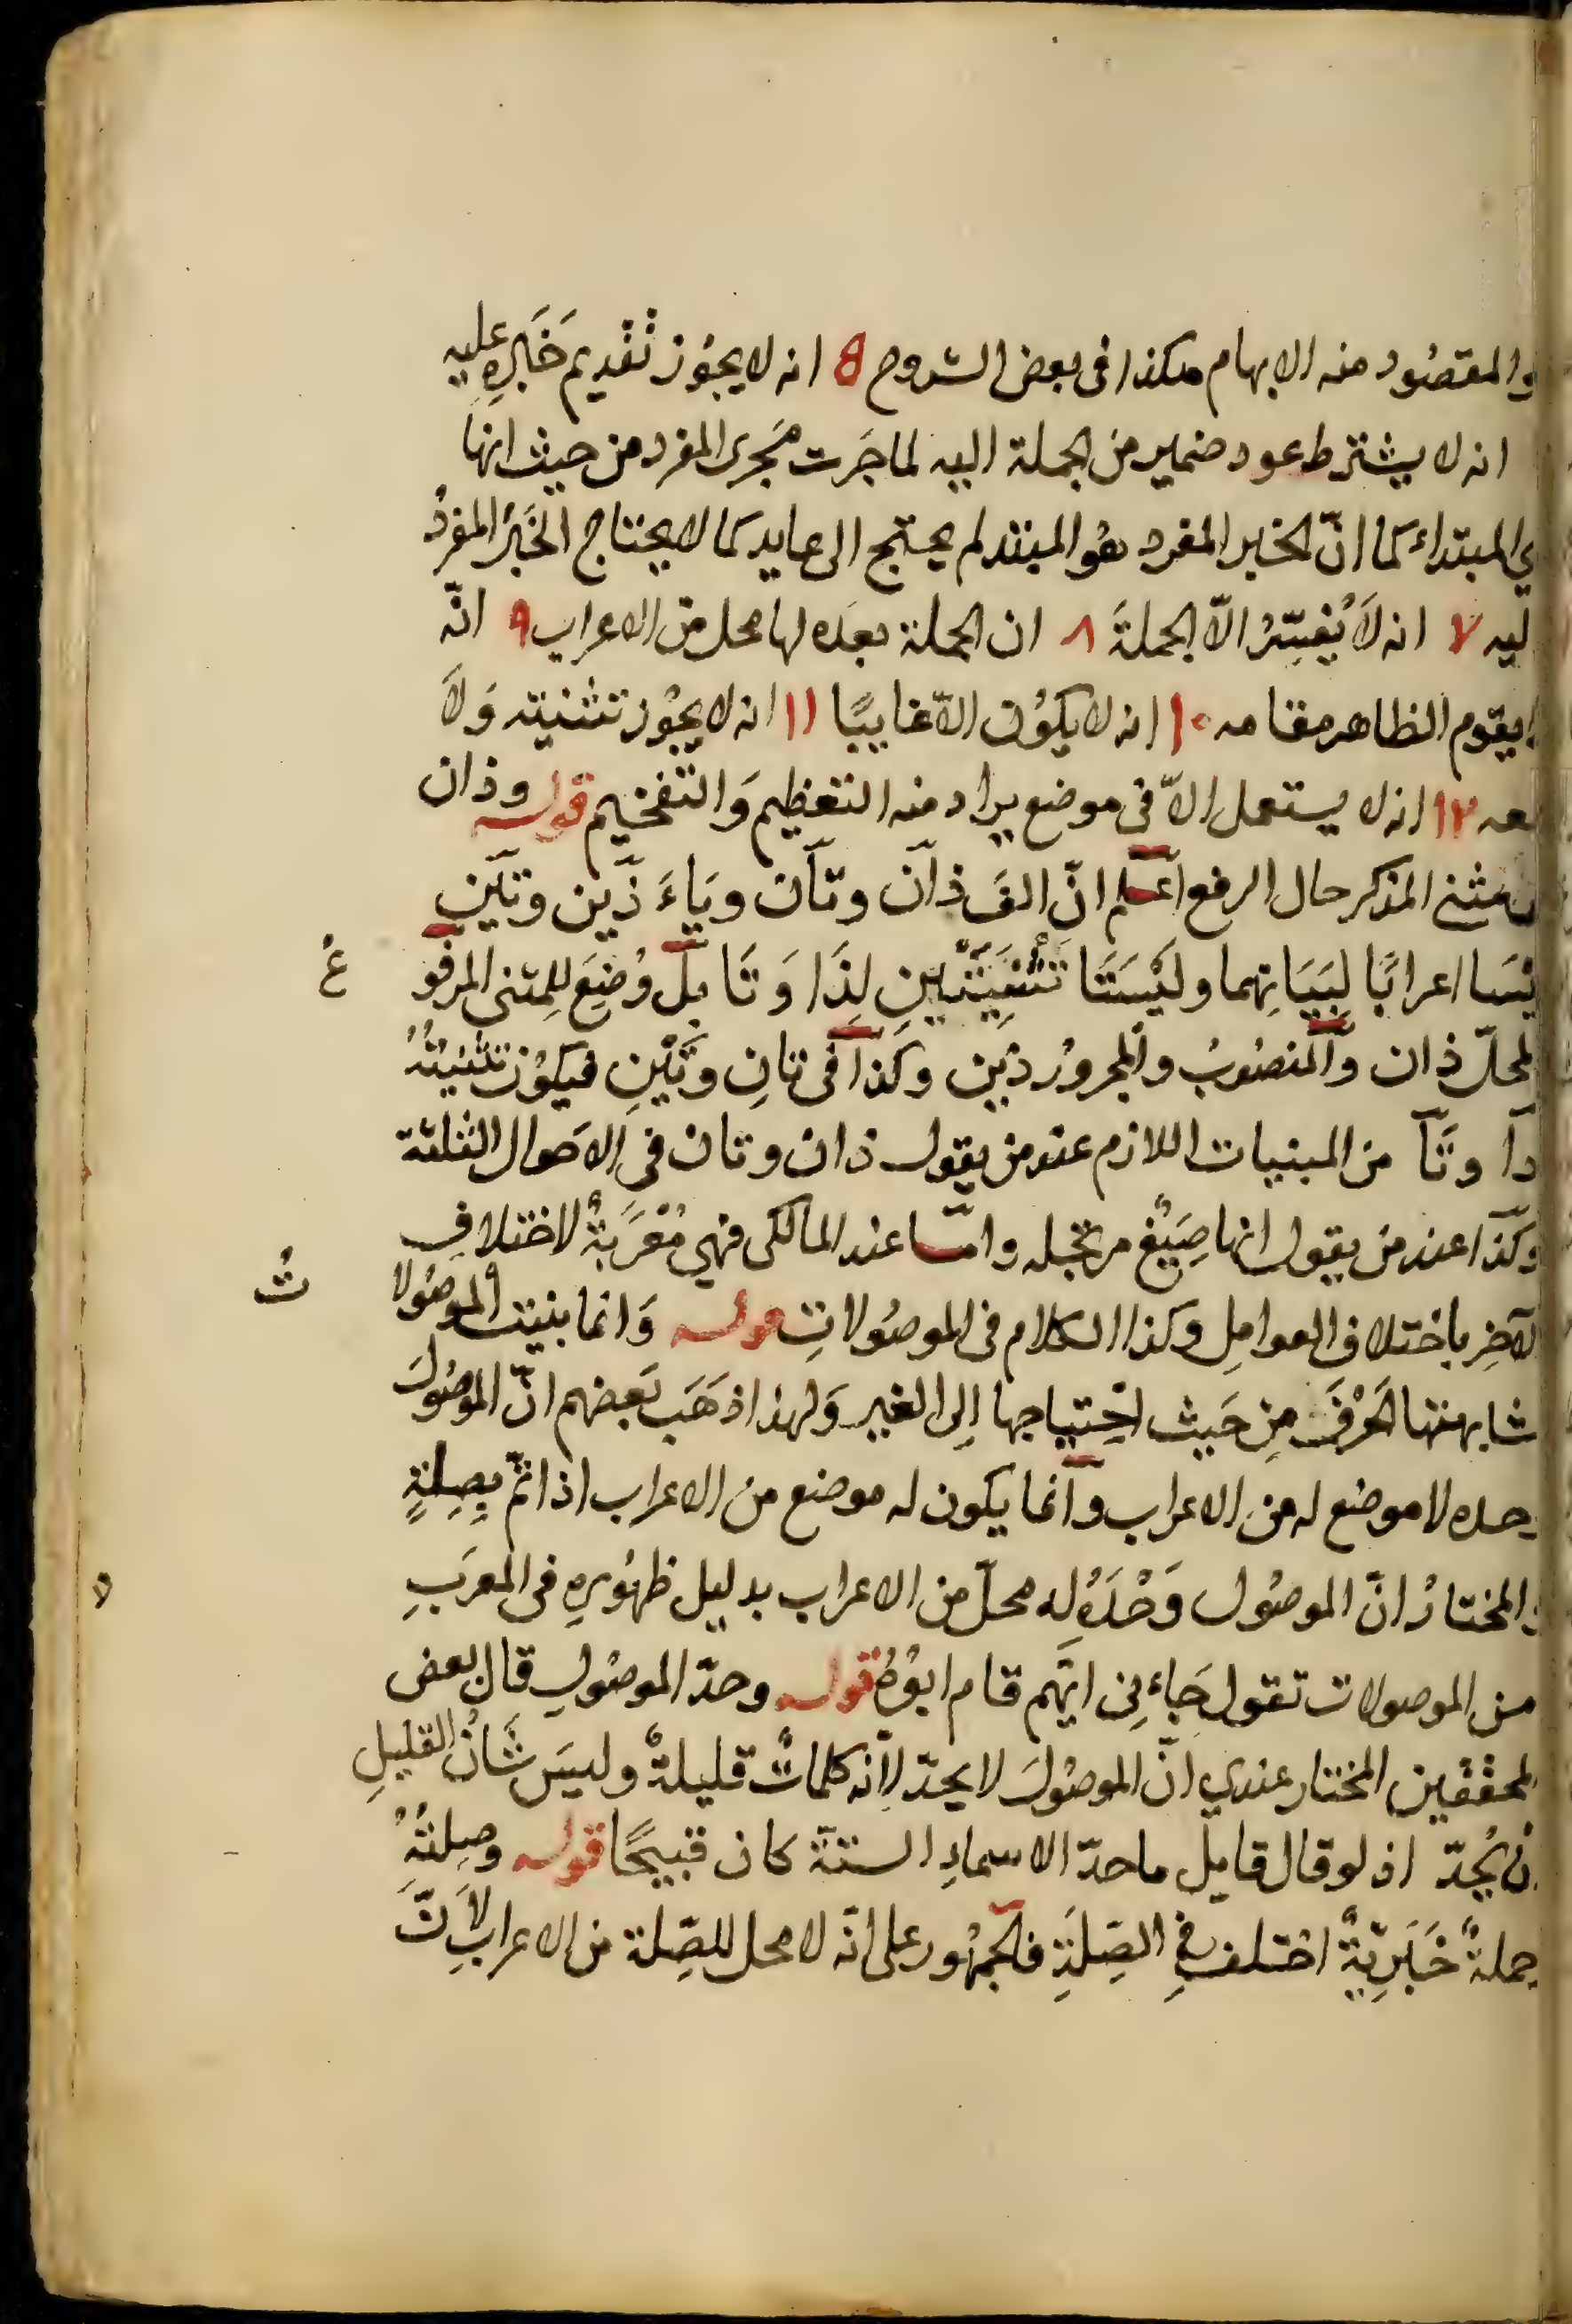 والمقصُود منه الابهام هكذا فى بعض الشروح 5 انه لا يجوُز تقديم خَبَرِهِ عليه
انه لا يشترط عود ضمير من الجملة اليه لما جَرت مَجرى المفرد من حيث انها
هي المبتداء كما انّ الخبر المفرد هو المبتدا لم يحتج الى عايد كما لا يحتاج الخَبَرُ المفردُ
اليه ٧ انه لَا يُفَسِّرُ الّا الجملةَ ٨ ان الجملة بعده لها محل من الاعراب ٩ انّه
لا يقوم الظاهر مقامه ١٠ انه لا يكوُن الّا غايبًا ١١ انه لا يجوُز تثنيته وَلَا
جمعه ١٢ انه لا يستعمل الّا فى موضع يراد منه التعظيم وَالتفخيم قوله وذان
لمثنى المذكر حال الرفع اعلم انّ الفَ ذان وتان ويَاءَ ذَين وتَين
ليسَا اعرابًا لِبَيَانِهما وليْسَتَا تَثْنِيَتَيْنِ لِذَا وَ تَا بل وُضِعَ للمثنى المرفو عُ
المحلّ ذان والمنصُوبُ والمجرورُ ذين وكذا فى تانِ وتَيْنِ فيكوُن تثنيتُهُ
ذا وتَا من المبنيات اللازم عند من يقول ذان وتان فى الاحوال الثلثة
وكذا عند من يقول انها صِيَغٌ مرتجله وامّا عند المالكى فهي مُعْرَبَةٌ لاختلافِ
الآخِرِ باختلاف العوامِل وكذا الكلام فى الموصُولاتِ قوله وَانما بنيت الموصُولا تُ
لمشابهتها الحَرْفَ مِن حَيث احتِياجها اِلى الغير وَلهذا ذهَبَ بَعضهم انّ الموصُولَ
وحده لا موضع له من الاعراب وانما يكون له موضع من الاعراب اذا تمّ بِصِلَتِهِ
والمختارُ انّ الموصُول وَحْدَهُ له محلّ من الاعراب بدليل ظهُورِهِ فى المعرَبِ
من الموصولات تقول جَاءنِى ايّهم قام ابوُهُ قوله وحدّ الموصُولِ قال بعض
المحققين المختار عندي انّ الموصُولَ لا يحدّ لِانّه كلماتٌ قليلةٌ وليسَ شَانُ القليلِ
ان يُحدّ اذ لو قال قايل ما حدّ الاسماءِ الستة كان قبيحًا قوله وصِلتُهُ
جملةٌ خَبَرِيّةٌ اختلف فِى الصِلَةِ فالجمهُور على انّه لا محل للصِّلة من الاعرابِ لِانّ